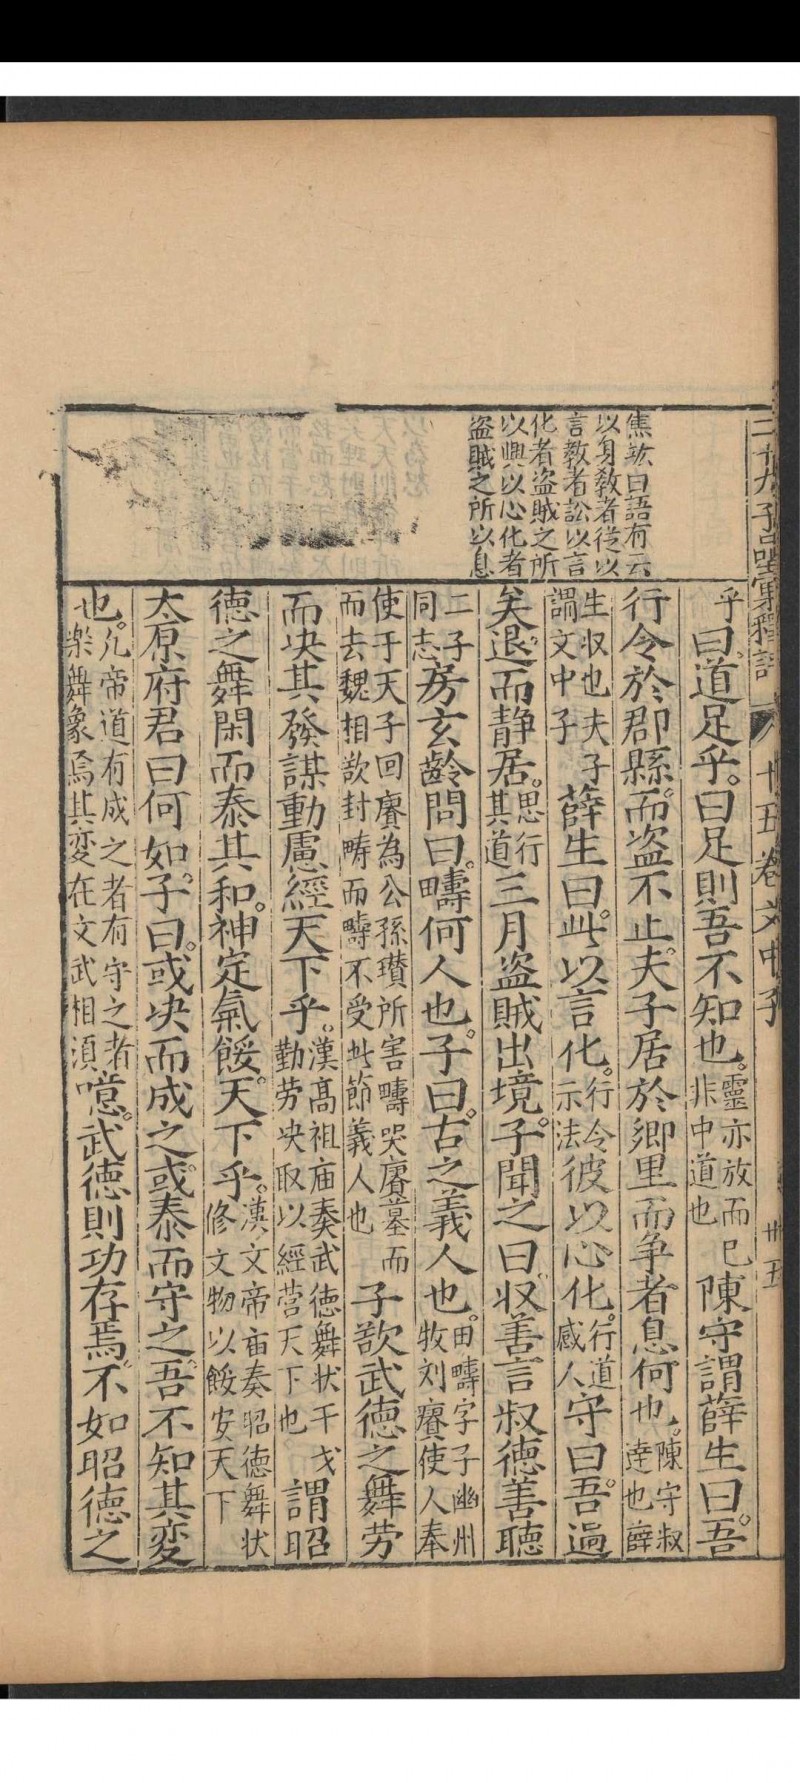 二十九子品彙釋評　十五卷文中子　卅五
焦竑曰語有云
以身教者從以
言教者訟以言
化者盜賊之所
以興以心化者
盜賊之所以息
乎曰道足乎。曰足則吾不知也。靈亦放而已非中道也陳守謂薛生曰。吾
行令於郡縣而盜不止。夫子居於鄉里而争者息何也。陳守叔達也薛
生収也夫子謂文中子薛生曰此以言化。行令示法彼以心化。行道感人守曰吾過
矣。退而静居。思行其道三月盜賊出境。子聞之曰収善言叔德善聽
二子同志房玄齡問曰。疇何人也。子曰。古之義人也。田疇字子幽州牧刘虞使人奉
使于天子回虞為公孫瓚所害疇哭虞墓而而去魏相欲封疇而疇不受此節義人也子欲武德之舞劳
而决其發謀動慮經天下乎。漢高祖庙奏武德舞状干戈勤劳决取以經营天下也謂昭
德之舞閑而泰其和。神定氣餒。天下乎。漢文帝庙奏昭德舞状修文物以餒安天下
太原府君曰何如。子曰。或决而成之。或泰而守之。吾不知其変
也。凡帝道有成之者有守之者樂舞象焉其変在文武相須噫。武德則功存焉。不如昭德之